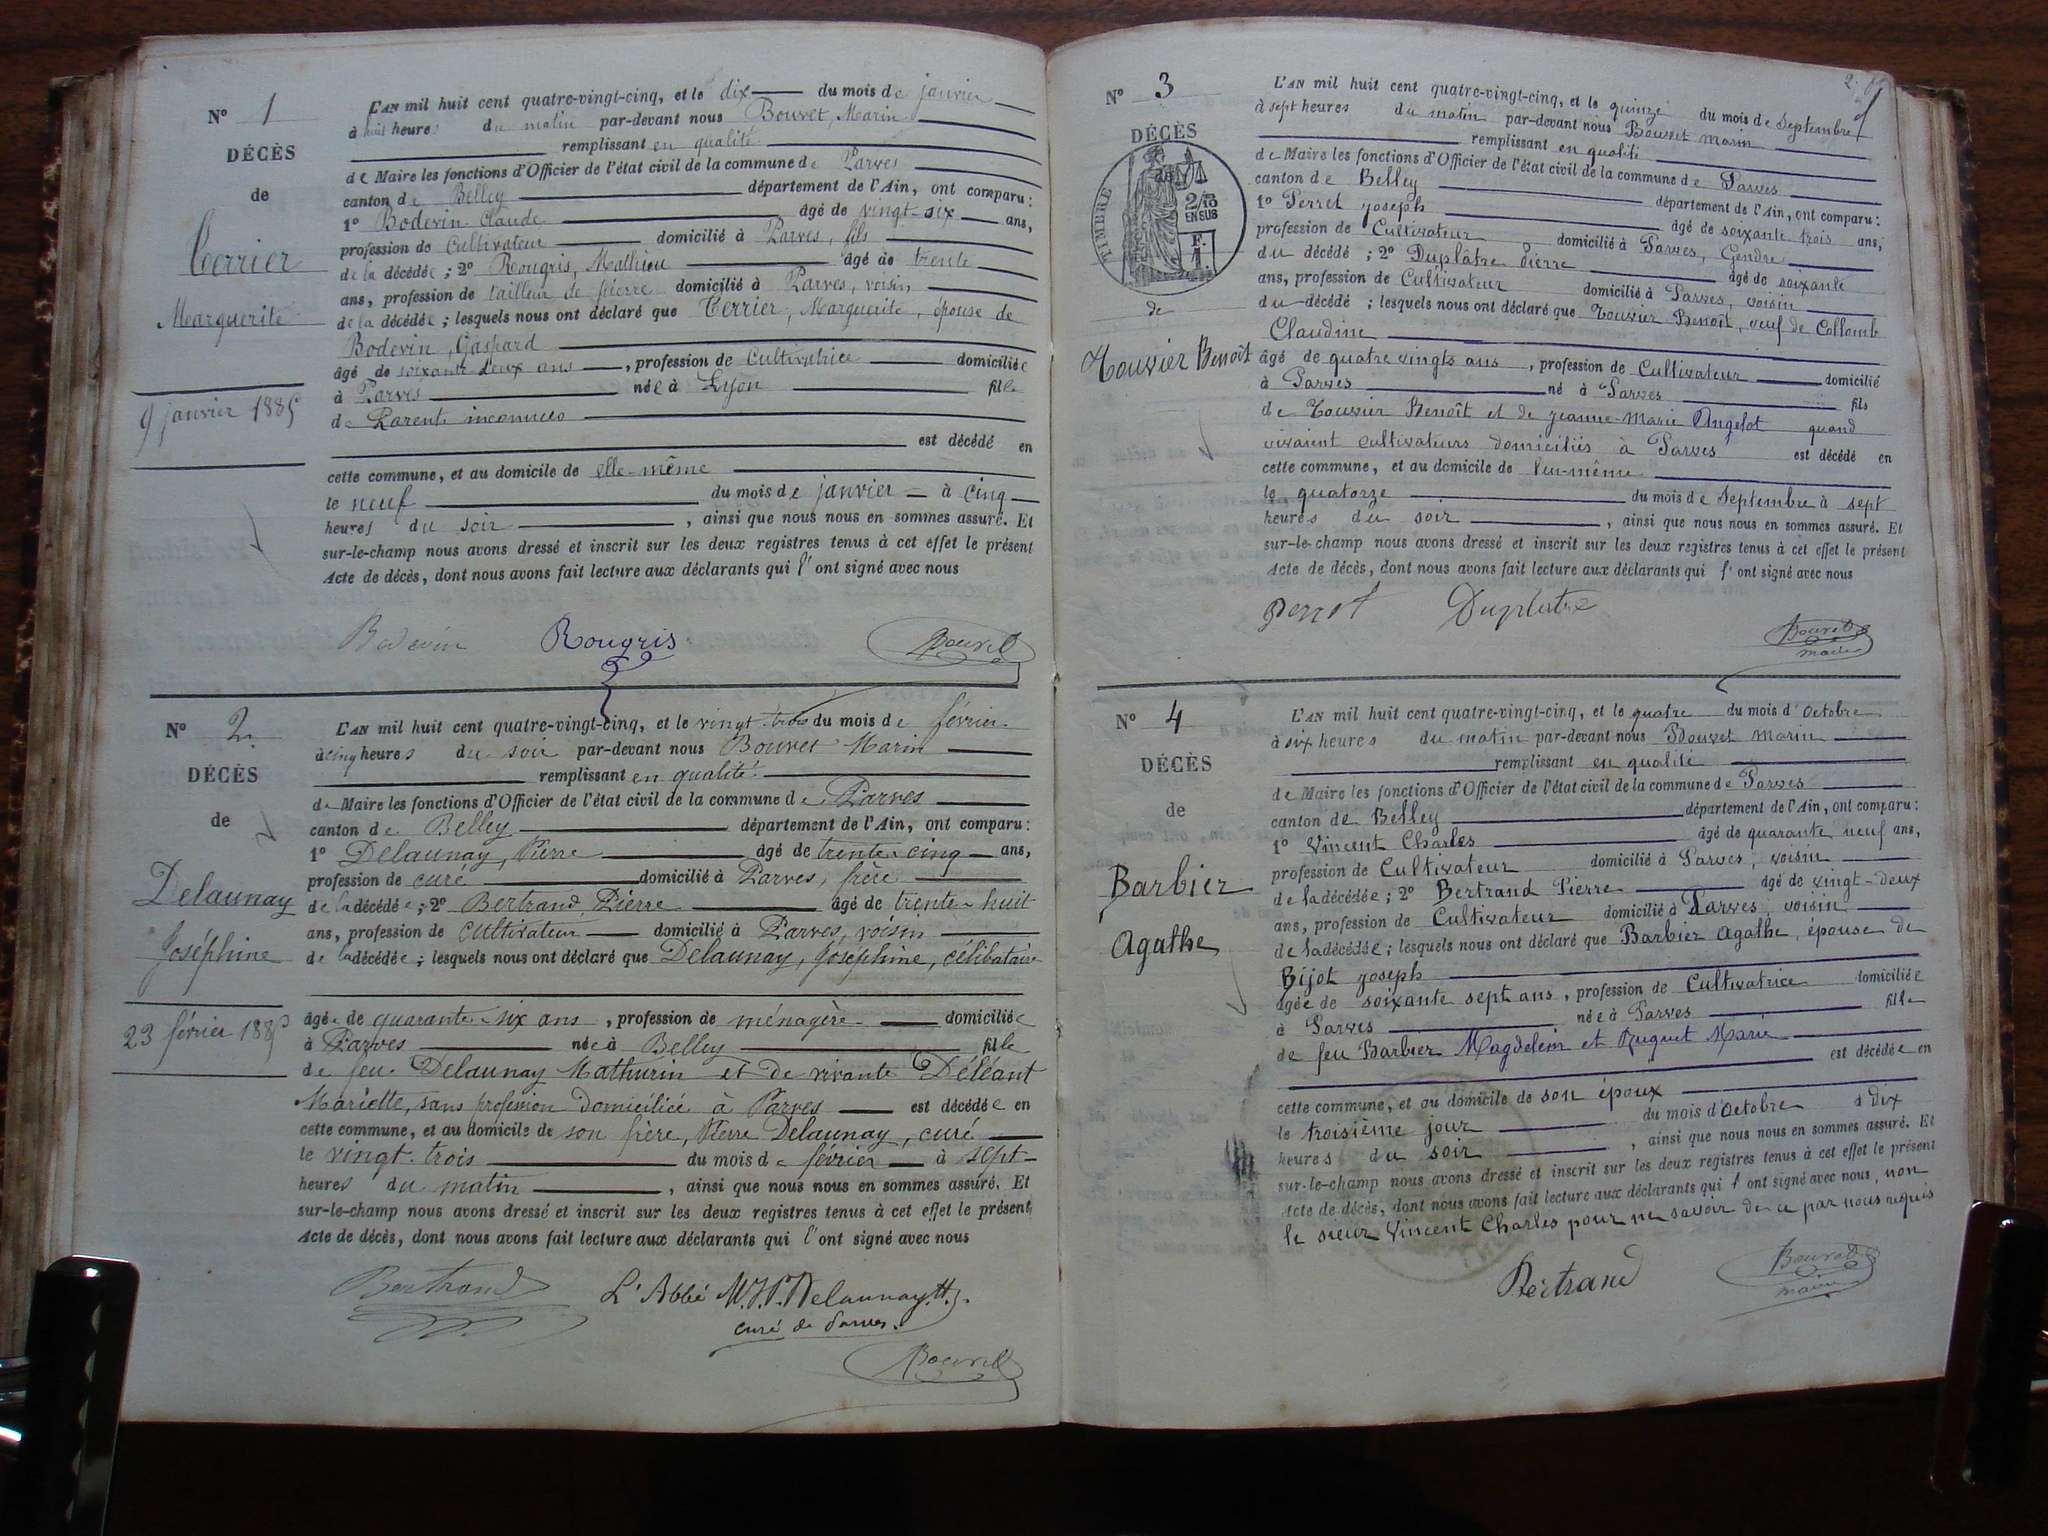 N° 1
DÉCÈS
de
Terrier
Marguerite
9 janvier 1885
L'AN mil huit cent quatre-vingt-cinq, et le dix du mois de janvier
à huit heures du matin par-devant nous Bouvet, Marin
remplissant en qualité
de Maire les fonctions d'Officier de l'état civil de la commune de Parves
canton de Belley département de l'Ain, ont comparu :
1° Bodevin Claude âgé de vingt-six ans,
profession de Cultivateur domicilié à Parves, fils
de la décédée ; 2° Rougris, Mathieu âgé de trente
ans, profession de tailleur de pierre domicilié à Parves, voisin
de la décédée ; lesquels nous ont déclaré que Terrier, Marguerite, épouse de
Bodevin, Gaspard
âgé de soixante deux ans, profession de Cultivatrice domiciliée
à Parves née à Lyon fille
de Parents inconnues
est décédé en
cette commune, et au domicile de elle-même
le neuf du mois de janvier à cinq
heures du soir, ainsi que nous nous en sommes assuré. Et
sur-le-champ nous avons dressé et inscrit sur les deux registres tenus à cet effet le présent
Acte de décès, dont nous avons fait lecture aux déclarants qui l'ont signé avec nous
Bodevin Rougris Bouvet
N° 2.
DÉCÈS
de
Delaunay
Joséphine
23 février 1885
L'AN mil huit cent quatre-vingt-cinq, et le vingt-trois du mois de février
à cinq heures du soir par-devant nous Bouvet Marin
remplissant en qualité
de Maire les fonctions d'Officier de l'état civil de la commune de Parves
canton de Belley département de l'Ain, ont comparu :
1° Delaunay, Pierre âgé de trente-cinq ans,
profession de curé domicilié à Parves, frère
de la décédée ; 2° Bertrand, Pierre âgé de trente-huit
ans, profession de cultivateur domicilié à Parves, voisin
de la décédée ; lesquels nous ont déclaré que Delaunay, Joséphine, célibataire
âgée de quarante-six ans, profession de ménagère domiciliée
à Parves née à Belley fille
de feu Delaunay Mathurin et de vivante Déléant
Mariette, sans profession domiciliée à Parves est décédée en
cette commune, et au domicile de son frère, Pierre Delaunay, curé
le vingt-trois du mois de février à sept
heures du matin, ainsi que nous nous en sommes assuré. Et
sur-le-champ nous avons dressé et inscrit sur les deux registres tenus à cet effet le présent
Acte de décès, dont nous avons fait lecture aux déclarants qui l'ont signé avec nous
Bertrand L'Abbé Delaunay
curé de Parves.
Bouvet
N° 3
DÉCÈS
TIMBRE
2/10 EN SUS
de
Touvier Benoît
L'AN mil huit cent quatre-vingt-cinq, et le quinze du mois de Septembre
à sept heures du matin par-devant nous Bouvet Marin
remplissant en qualité
de Maire les fonctions d'Officier de l'état civil de la commune de Parves
canton de Belley département de l'Ain, ont comparu :
1° Perret Joseph âgé de soixante trois ans,
profession de Cultivateur domicilié à Parves, Gendre
du décédé ; 2° Duplâtre Pierre âgé de soixante
ans, profession de Cultivateur domicilié à Parves, voisin
du décédé ; lesquels nous ont déclaré que Touvier Benoît, veuf de Collomb
Claudine
âgé de quatre vingts ans, profession de Cultivateur domicilié
à Parves né à Parves fils
de Touvier Benoît et de Jeanne-Marie Angelot quand
vivaient cultivateurs domiciliés à Parves est décédé en
cette commune, et au domicile de lui-même
le quatorze du mois de Septembre à sept
heures du soir, ainsi que nous nous en sommes assuré. Et
sur-le-champ nous avons dressé et inscrit sur les deux registres tenus à cet effet le présent
Acte de décès, dont nous avons fait lecture aux déclarants qui l'ont signé avec nous
Perret Duplatre Bouvet
maire
N° 4
DÉCÈS
de
Barbier
Agathe
L'AN mil huit cent quatre-vingt-cinq, et le quatre du mois d'Octobre
à six heures du matin par-devant nous Bouvet Marin
remplissant en qualité
de Maire les fonctions d'Officier de l'état civil de la commune de Parves
canton de Belley département de l'Ain, ont comparu :
1° Vincent Charles âgé de quarante neuf ans,
profession de Cultivateur domicilié à Parves, voisin
de la décédée ; 2° Bertrand Pierre âgé de vingt-deux
ans, profession de Cultivateur domicilié à Parves, voisin
de la décédée ; lesquels nous ont déclaré que Barbier Agathe, épouse de
Bijot Joseph
âgée de soixante sept ans, profession de Cultivatrice domiciliée
à Parves née à Parves fille
de feu Barbier Magdelein et Huguet Marie
est décédée en
cette commune, et au domicile de son époux
le troisième jour du mois d'Octobre à dix
heures du soir, ainsi que nous nous en sommes assuré. Et
sur-le-champ nous avons dressé et inscrit sur les deux registres tenus à cet effet le présent
Acte de décès, dont nous avons fait lecture aux déclarants qui l'ont signé avec nous, non
le sieur Vincent Charles pour ne savoir de ce par nous requis
Bertrand Bouvet
maire